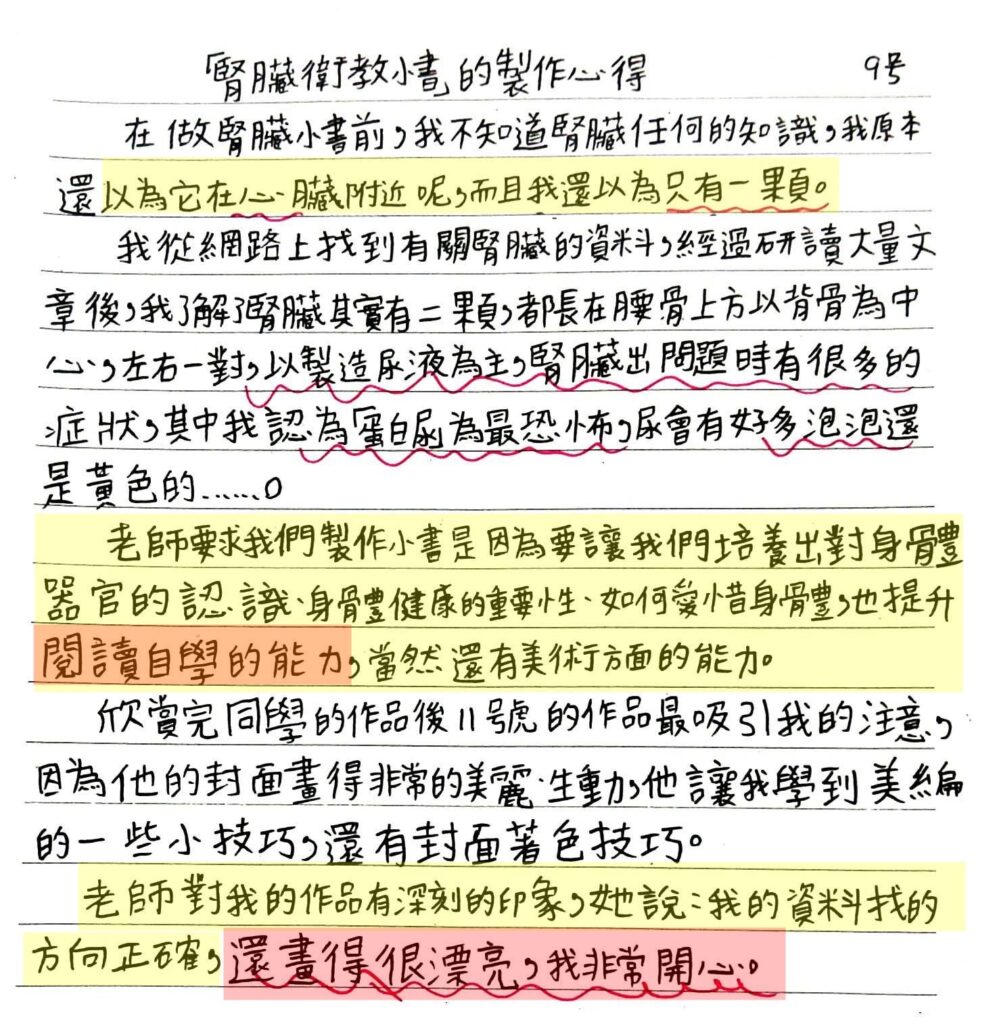 「腎臟衛教小書」的製作心得 9号
在做腎臟小書前,我不知道腎臟任何的知識,我原本
還以為它在心臟附近呢,而且我還以為只有一顆。
我從網路上找到有關腎臟的資料,經過研讀大量文
章後,我了解了腎臟其實有二顆,都長在腰骨上方以背骨為中
心,左右一對,以製造尿液為主,腎臟出問題時有很多的
症狀,其中我認為蛋白尿為最恐怖,尿會有好多泡泡還
是黃色的......。
老師要求我們製作小書是因為要讓我們培養出對身體
器官的認識、身體健康的重要性、如何愛惜身體,也提升
閱讀自學的能力,當然還有美術方面的能力。
欣賞完同學的作品後11號的作品最吸引我的注意,
因為他的封面畫得非常的美麗、生動,他讓我學到美編
的一些小技巧,還有封面著色技巧。
老師對我的作品有深刻的印象,她說:我的資料找的
方向正確,還畫得很漂亮,我非常開心。